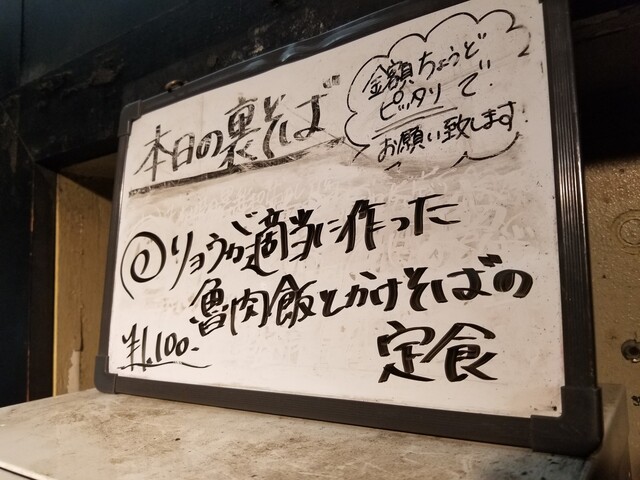 本日の裏そば
金額ちょうど
ピッタリで
お願い致します
@リョウが適当に作った
魯肉飯とかけそばの
定食
¥1,100-